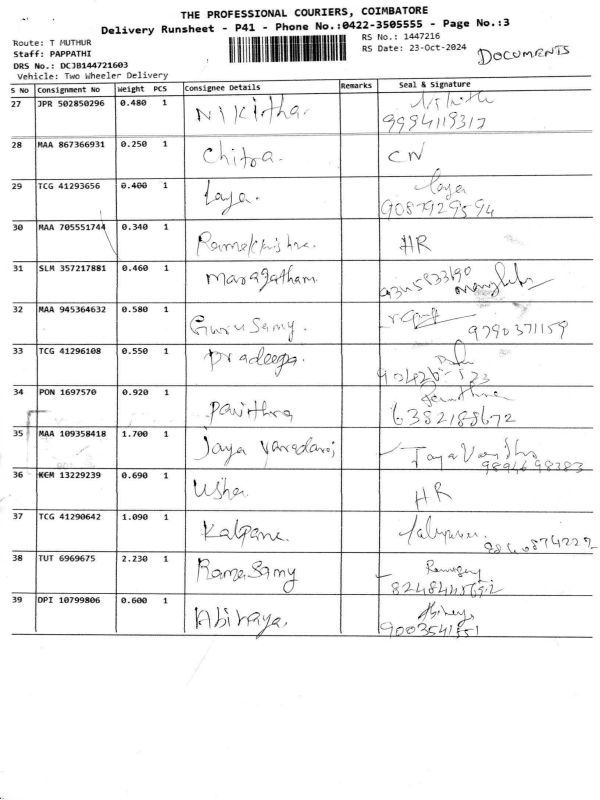 THE PROFESSIONAL COURIERS, COIMBATORE
Delivery Runsheet - P41 - Phone No.:0422-3505555 - Page No.:3
Route: T MUTHUR RS No.: 1447216
Staff: PAPPATHI RS Date: 23-Oct-2024 DOCUMENTS
DRS No.: DCJB144721603
Vehicle: Two Wheeler Delivery
S No Consignment No Weight PCS Consignee Details Remarks Seal & Signature
27 JPR 502850296 0.480 1 Nikitha
9994119317
28 MAA 867366931 0.250 1 Chitra. CN
29 TCG 41293656 0.400 1 Laya. Laya
9087929594
30 MAA 705551744 0.340 1 HR
31 SLM 357217881 0.460 1 Maragatham
9345833690
32 MAA 945364632 0.580 1 Guru Samy.
9790371159
33 TCG 41296108 0.550 1 Pradeepa.
34 PON 1697570 0.920 1 Pavithra
6382188672
35 MAA 109358418 1.700 1 Jaya Varadaraj
9894698383
36 KCM 13229239 0.690 1 Usha HR
37 TCG 41290642 1.090 1 Kalpana
9840874222
38 TUT 6969675 2.230 1 Rama Samy
39 DPI 10799806 0.600 1 Abinaya.